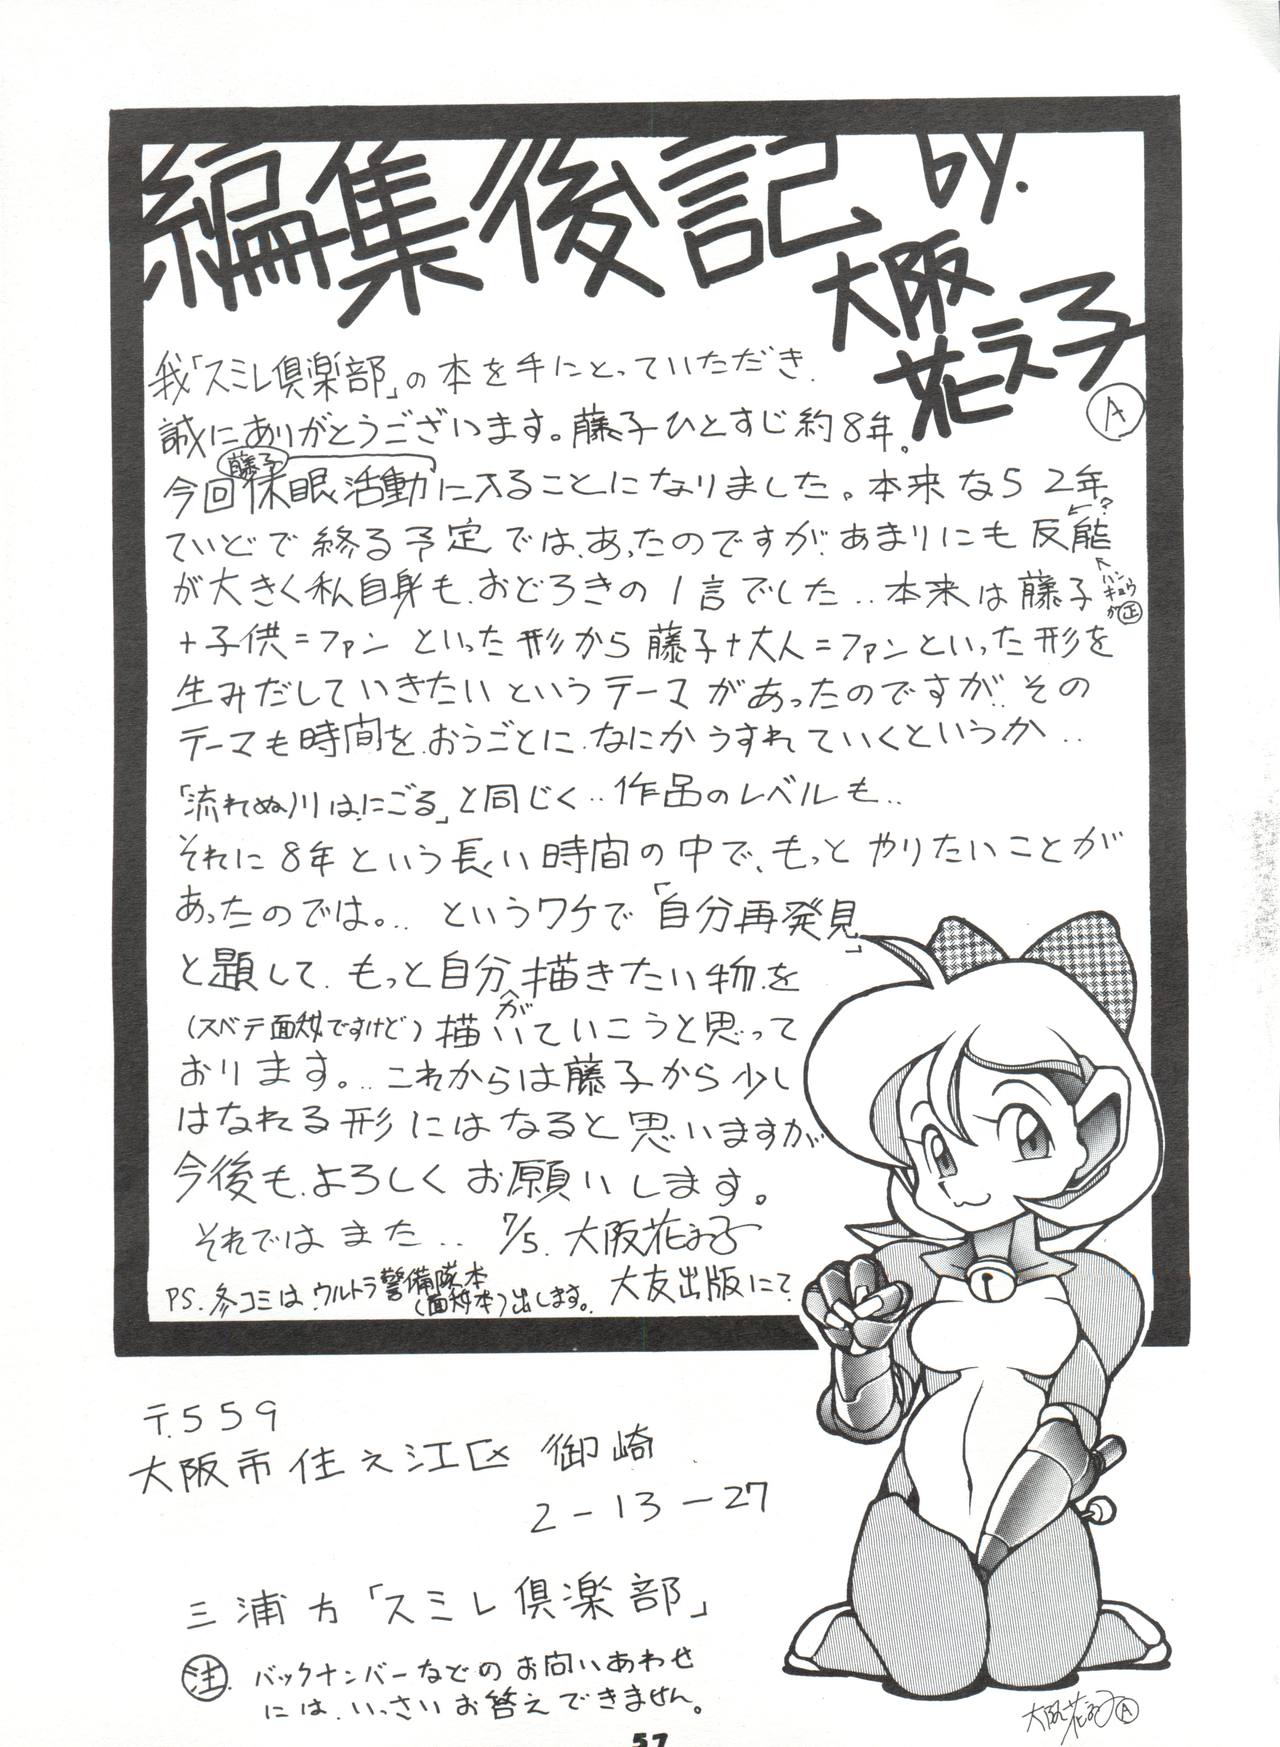 編集後記 by.
大阪
花え子
Ⓐ
我「スミレ倶楽部」の本を手にとっていただき.
誠にありがとうございます。藤子ひとすじ約8年。
藤子
今回休眠活動に入ることになりました。本来なら2年
ていどで終る予定では、あったのですが、あまりにも反能
←?
ハンキョウが㊣
が大きく私自身も、おどろきの1言でした‥本来は藤子
+子供=ファン といった形から 藤子+大人=ファンといった形を
生みだしていきたいというテーマがあったのですが‥その
テーマも時間を、おうごとに、なにかうすれていくというか‥
「流れぬ川は、にごる」と同じく‥作品のレベルも‥
それに8年という長い時間の中で、もっとやりたいことが
あったのでは。‥ というワケで「自分再発見」
と題して、もっと自分が描きたい物を
(スベテ面妖ですけど)描いていこうと思って
おります。‥これからは藤子から少し
はなれる形にはなると思いますが
今後も、よろしくお願いします。
それではまた‥ 7/5. 大阪花え子
大友出版にて
PS. 冬コミは、ウルトラ警備隊本
(面妖本)出します。
〒559
大阪市住之江区 御崎
2-13-27
三浦方「スミレ倶楽部」
㊟ バックナンバーなどのお問いあわせ
には、いっさいお答えできません。
大阪花え子Ⓐ
57